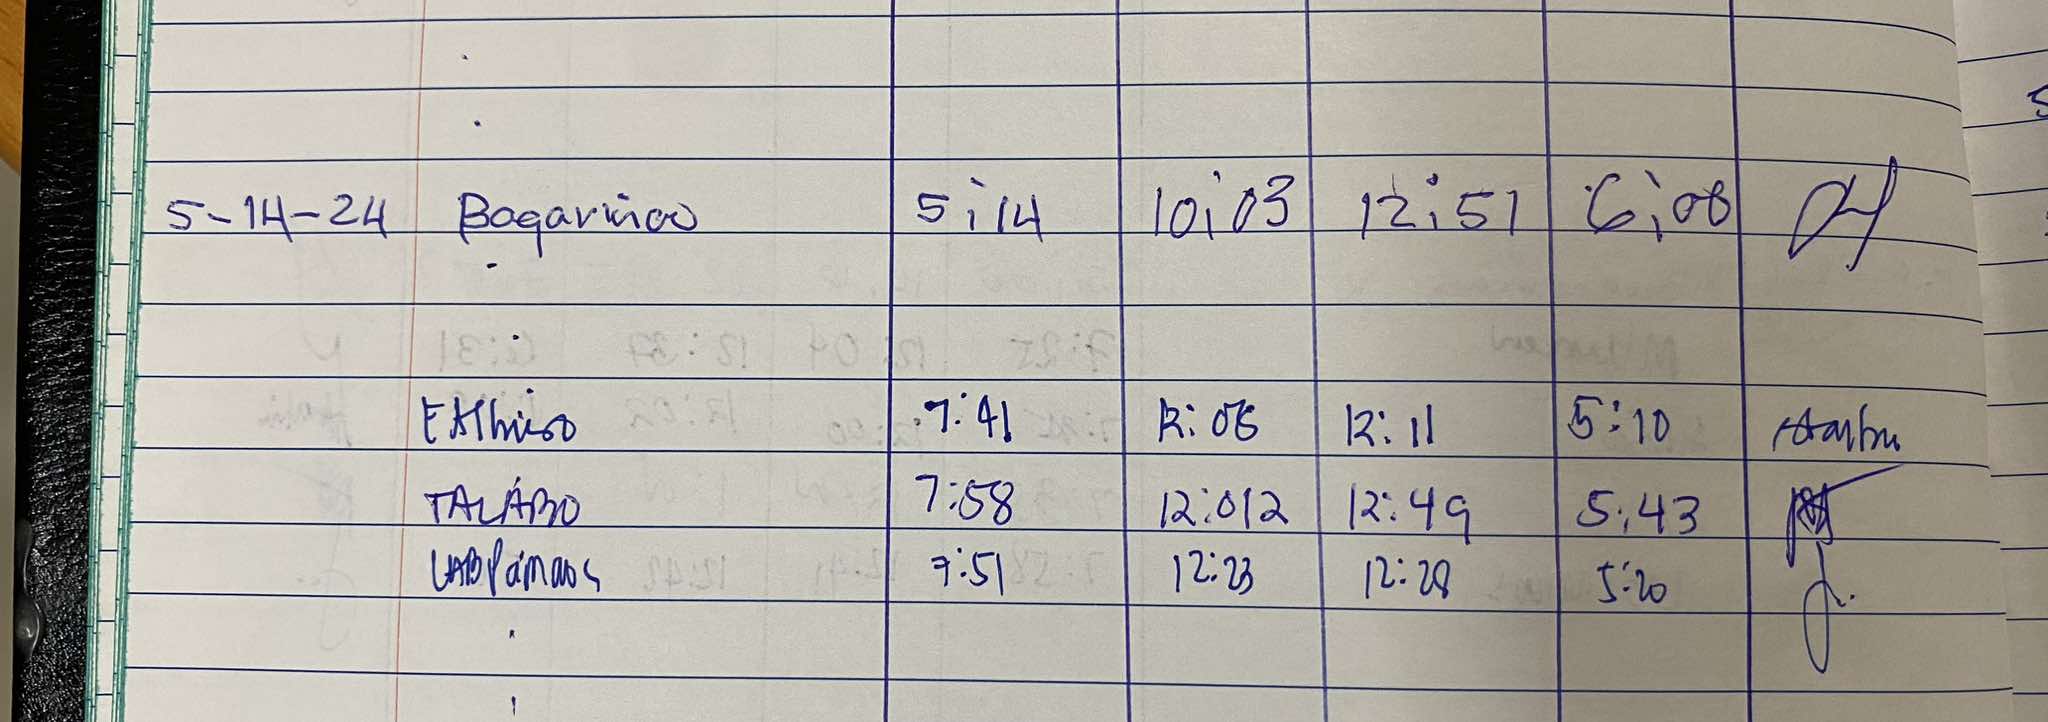 5-14-24 Bagarinao 5:14 10:03 12:51 6:08
7:41 12:06 12:11 5:10
TALABO 7:58 12:012 12:49 5:43
7:51 12:23 12:28 5:20